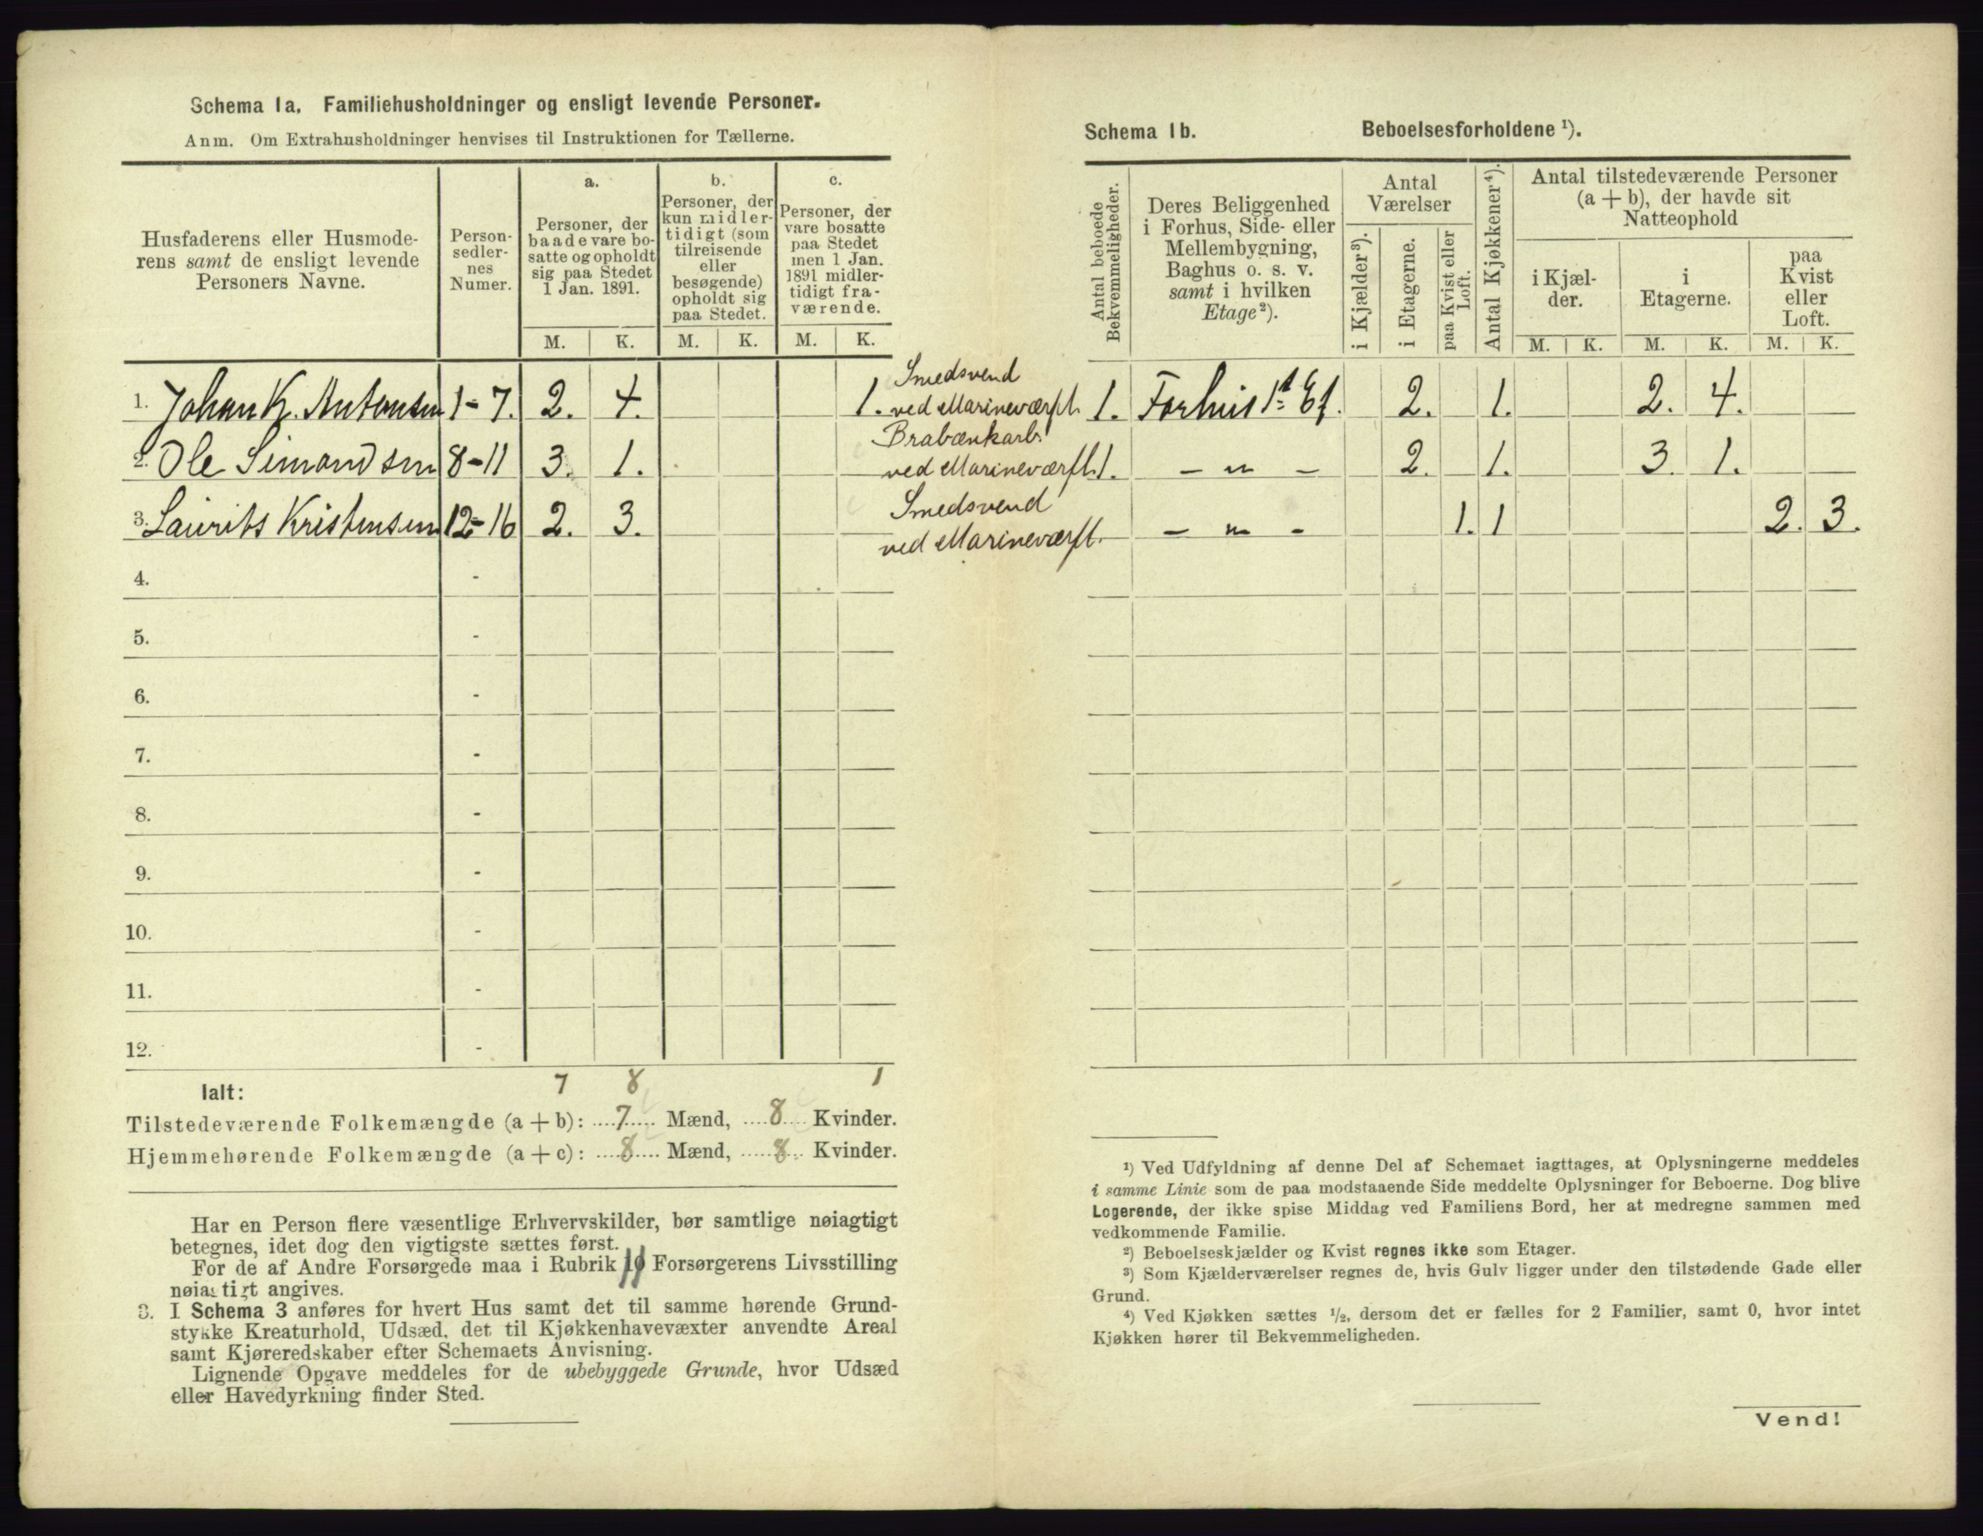 Schema 1a. Familiehusholdninger og ensligt levende Personer.
Anm. Om Extrahusholdninger henvises til Instruktionen for Tællerne.
Husfaderens eller Husmode-
rens samt de ensligt levende
Personers Navne.
Person-
sedler-
nes
Numer.
a.
Personer, der
baade vare bo-
satte og opholdt
sig paa Stedet
1 Jan. 1891.
b.
Personer, der
kun midler-
tidigt (som
tilreisende
eller
besøgende)
opholdt sig
paa Stedet.
c.
Personer, der
vare bosatte
paa Stedet
men 1 Jan.
1891 midler-
tidigt fra-
værende.
M. K. M. K. M. K.
1. Johan K. Antonsen 1-7. 2. 4. 1. Smedsvend
ved Marineværft.
2. Ole Simondsen 8-11 3. 1. Brabænkarb.
ved Marineværft.
3. Laurits Kristensen 12-16 2. 3. Smedsvend
ved Marineværft.
4. -
5. -
6. -
7. -
8. -
9. -
10. -
11. -
12. -
Ialt: 7 8 1
Tilstedeværende Folkemængde (a + b): 7 Mænd, 8 Kvinder.
Hjemmehørende Folkemængde (a + c): 8 Mænd, 8 Kvinder.
Har en Person flere væsentlige Erhvervskilder, bør samtlige nøiagtigt
betegnes, idet dog den vigtigste sættes først.
For de af Andre Forsørgede maa i Rubrik 11 Forsørgerens Livsstilling
nøiagtigt angives.
3. I Schema 3 anføres for hvert Hus samt det til samme hørende Grund-
stykke Kreaturhold, Udsæd, det til Kjøkkenhavevæxter anvendte Areal
samt Kjøreredskaber efter Schemaets Anvisning.
Lignende Opgave meddeles for de ubebyggede Grunde, hvor Udsæd
eller Havedyrkning finder Sted.
Schema 1b. Beboelsesforholdene ¹).
Antal beboede
Bekvemmeligheder.
Deres Beliggenhed
i Forhus, Side- eller
Mellembygning,
Baghus o. s. v.
samt i hvilken
Etage²).
Antal
Værelser
i Kjælder³).
i Etagerne.
paa Kvist eller
Loft.
Antal Kjøkkener⁴).
Antal tilstedeværende Personer
(a + b), der havde sit
Natteophold
i Kjæl-
der.
i
Etagerne.
paa
Kvist
eller
Loft.
M. K. M. K. M. K.
1. Forhus 1st Et. 2. 1. 2. 4.
1. - " - 2. 1. 3. 1.
- " - 1. 1 2. 3.
¹) Ved Udfyldning af denne Del af Schemaet iagttages, at Oplysningerne meddeles
i samme Linie som de paa modstaaende Side meddelte Oplysninger for Beboerne. Dog blive
Logerende, der ikke spise Middag ved Familiens Bord, her at medregne sammen med
vedkommende Familie.
²) Beboelseskjælder og Kvist regnes ikke som Etager.
³) Som Kjælderværelser regnes de, hvis Gulv ligger under den tilstødende Gade eller
Grund.
⁴) Ved Kjøkken sættes ½, dersom det er fælles for 2 Familier, samt 0, hvor intet
Kjøkken hører til Bekvemmeligheden.
Vend!